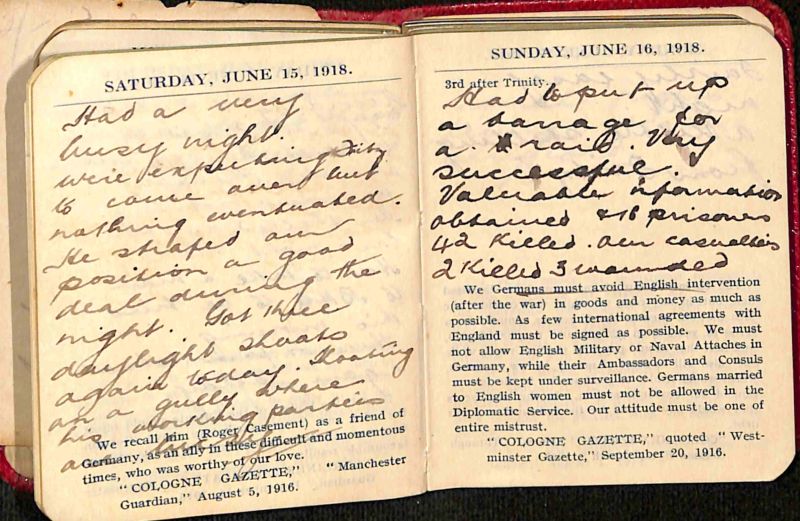 SATURDAY, JUNE 15, 1918.
Had a very
busy night.
were expecting Fritz
to come over but
nothing eventuated.
He strafed our
position a good
deal during the
night. Got three
daylight shoots
again today. Shooting
on a gully where
his working parties
are
We recall him (Roger Casement) as a friend of
Germany, as an ally in these difficult and momentous
times, who was worthy of our love.
"COLOGNE GAZETTE," "Manchester
Guardian," August 5, 1916.
SUNDAY, JUNE 16, 1918.
3rd after Trinity.
Had to put up
a barrage for
a raid. Very
successful.
Valuable information
obtained & 18 prisoners
42 Killed. our casualties
2 Killed 3 wounded
We Germans must avoid English intervention
(after the war) in goods and money as much as
possible. As few international agreements with
England must be signed as possible. We must
not allow English Military or Naval Attaches in
Germany, while their Ambassadors and Consuls
must be kept under surveillance. Germans married
to English women must not be allowed in the
Diplomatic Service. Our attitude must be one of
entire mistrust.
"COLOGNE GAZETTE," quoted "West-
minster Gazette," September 20, 1916.